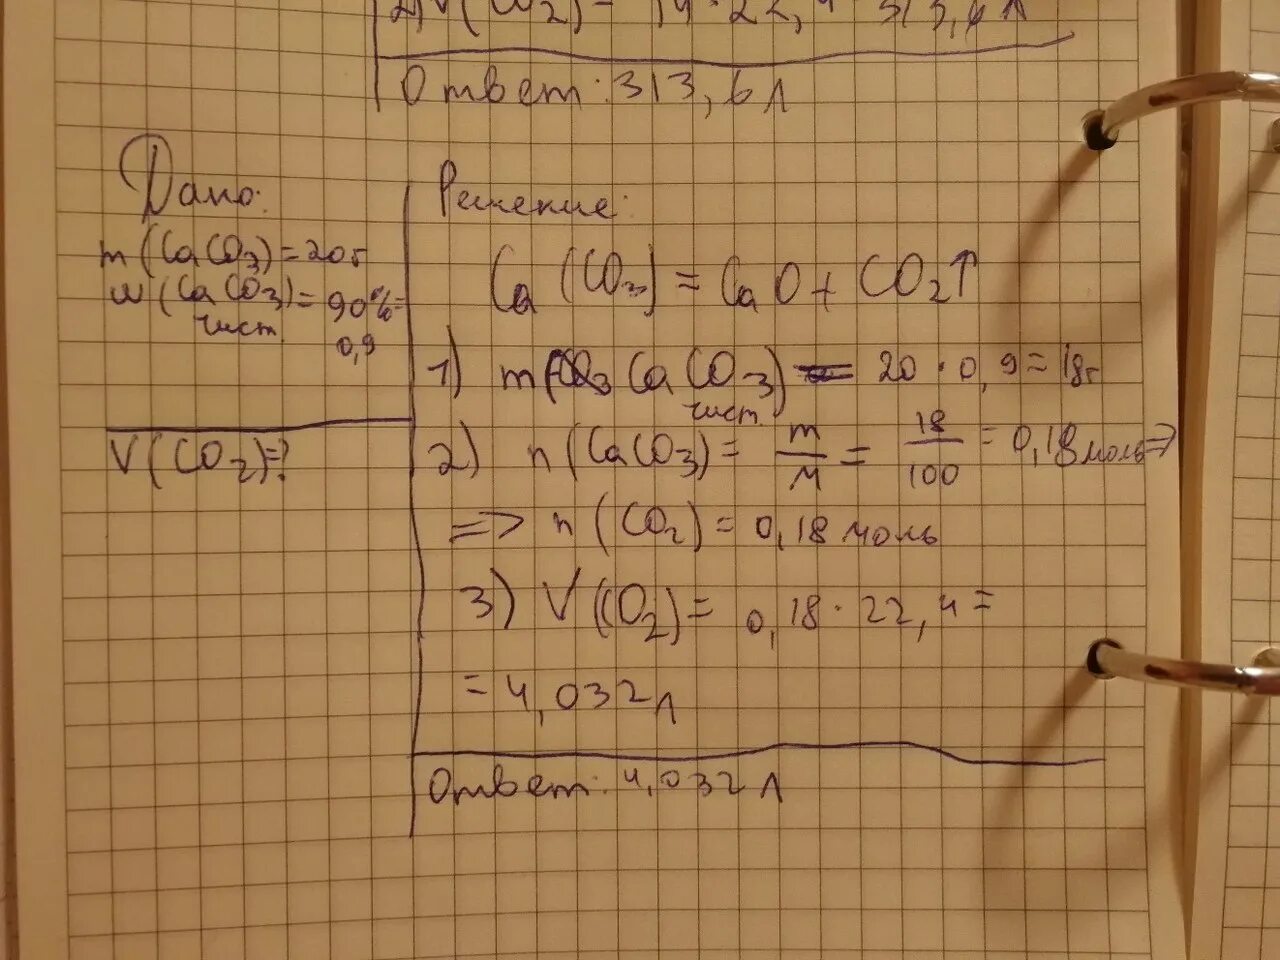 2) V(CO2) = 14 · 22,4 = 313,6 л
Ответ: 313,6 л
Дано:
m (CaCO3) = 20г
w (CaCO3) = 90% =
чист. 0,9
V(CO2)=?
Решение:
Ca (CO3) = CaO + CO2↑
1) m( CaCO3) = 20 · 0,9 = 18г
чист.
2) n (CaCO3) = m/M = 18/100 = 0,18 моль =>
=> n (CO2) = 0,18 моль
3) V (CO2) = 0,18 · 22,4 =
= 4,032 л
Ответ: 4,032 л